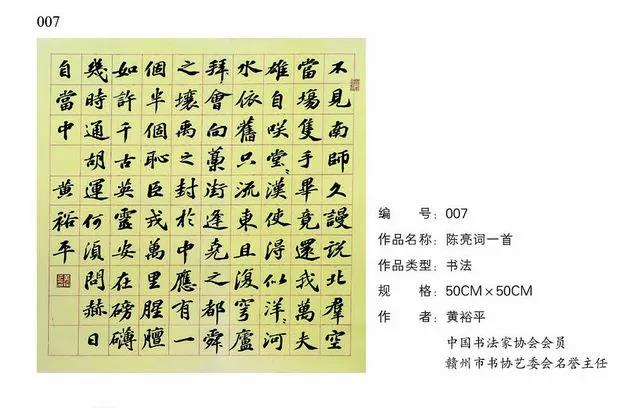 007
不見南師久謾說北羣空
當場隻手畢竟還我萬夫
雄自咲堂〻漢使得似洋〻河
水依舊只流東且復穹廬
拜會向藁街逢堯之都舜
之壤禹之封於中應有一
個半個恥臣戎萬里腥膻
如許千古英靈安在磅礴
幾時通胡運何須問赫日
自當中 黃裕平
编 号：007
作品名称：陈亮词一首
作品类型：书法
规 格：50CM×50CM
作 者：黄裕平
中国书法家协会会员
赣州市书协艺委会名誉主任